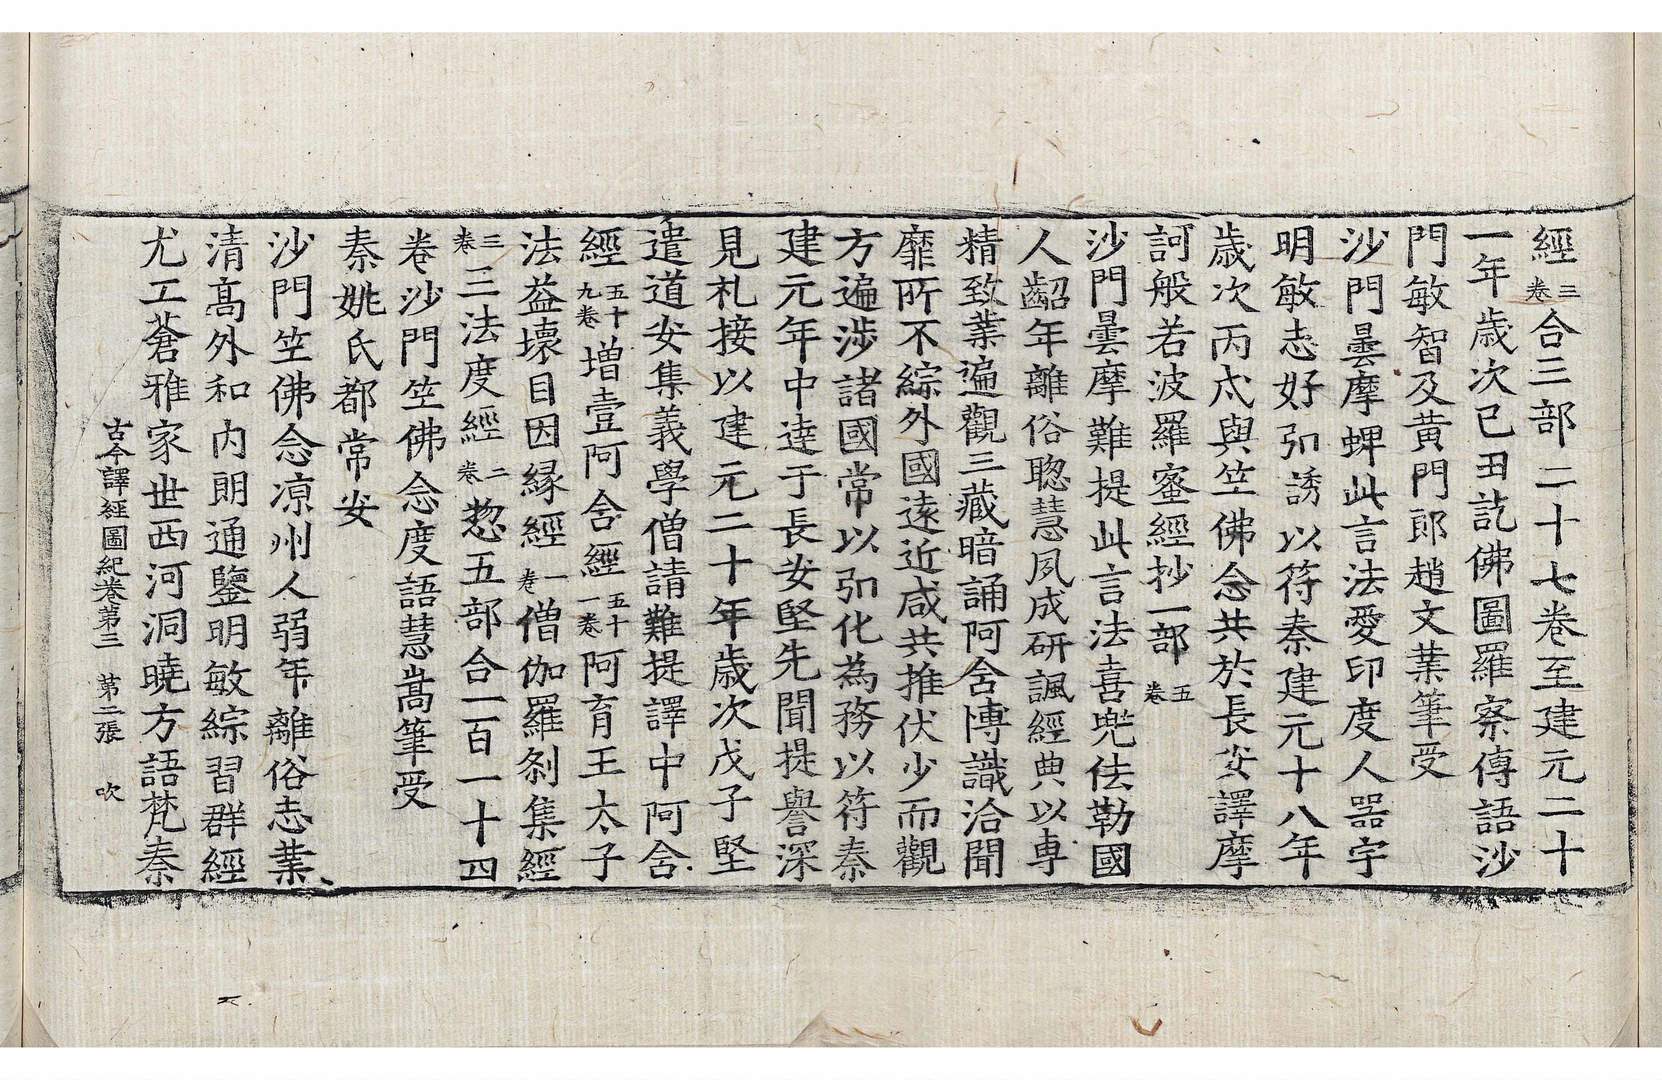 經三卷合三部二十七卷至建元二十
一年歳次己丑訖佛圖羅察傳語沙
門敏智及黄門郎趙文業筆受
沙門曇摩蜱此言法愛印度人器宇
明敏志好弘誘以符秦建元十八年
歳次丙戌與竺佛念共於長安譯摩
訶般若波羅蜜經抄一部五卷
沙門曇摩難提此言法喜兜佉勒國
人齠年離俗聦慧夙成研諷經典以專
精致業遍觀三藏暗誦阿含博識洽聞
靡所不綜外國遠近咸共推伏少而觀
方遍涉諸國常以弘化為務以符秦
建元年中達于長安堅先聞提譽深
見礼接以建元二十年歳次戊子堅
遣道安集義學僧請難提譯中阿含
經五十九卷增壹阿含經五十一卷阿育王太子
法益壞目因縁經一卷僧伽羅刹集經
三卷三法度經二卷惣五部合一百一十四
卷沙門竺佛念度語慧嵩筆受
秦姚氏都常安
沙門竺佛念凉州人弱年離俗志業
清髙外和内朗通鑒明敏綜習群經
尤工蒼雅家世西河洞曉方語梵秦
古今譯經圖紀卷第三　第二張　吹